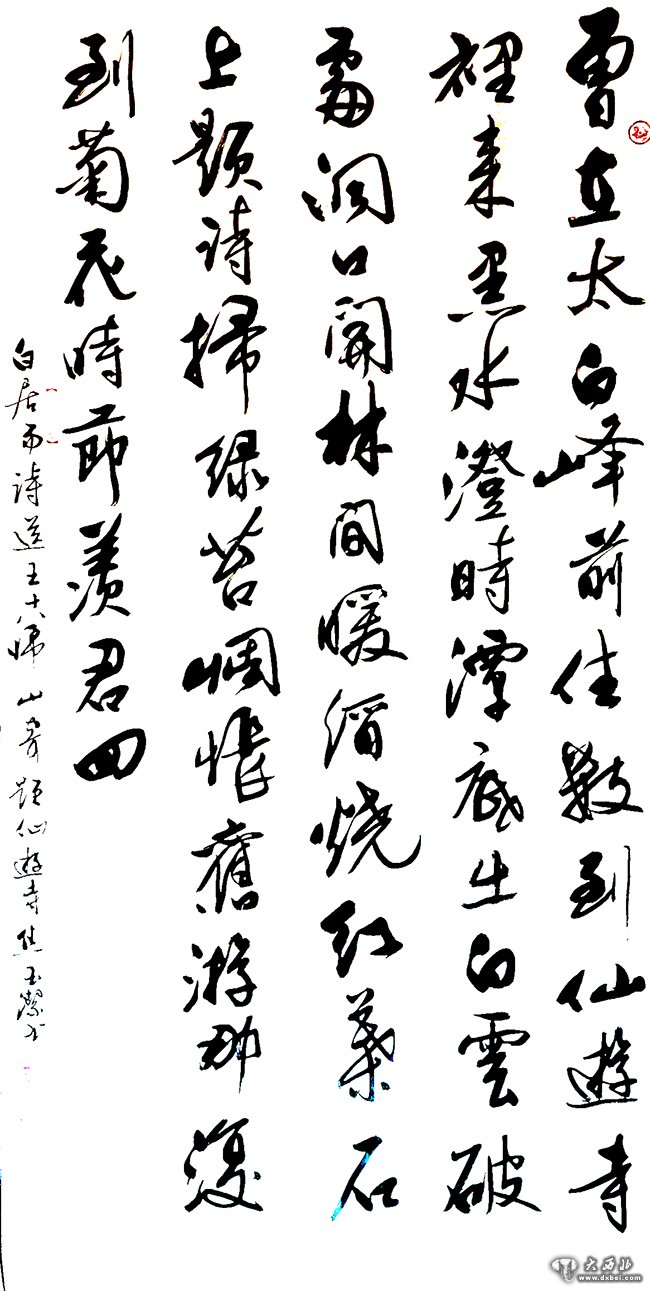 曾在太白峰前住數到仙遊寺
裡来黑水澄時潭底出白雲破
處洞口開林間暖酒燒紅葉石
上題詩掃绿苔惆悵舊游那復
到菊花時節羨君回
白居易詩送王十八歸山寄題仙遊寺焦玉潔书
大西北
www.dxbei.com